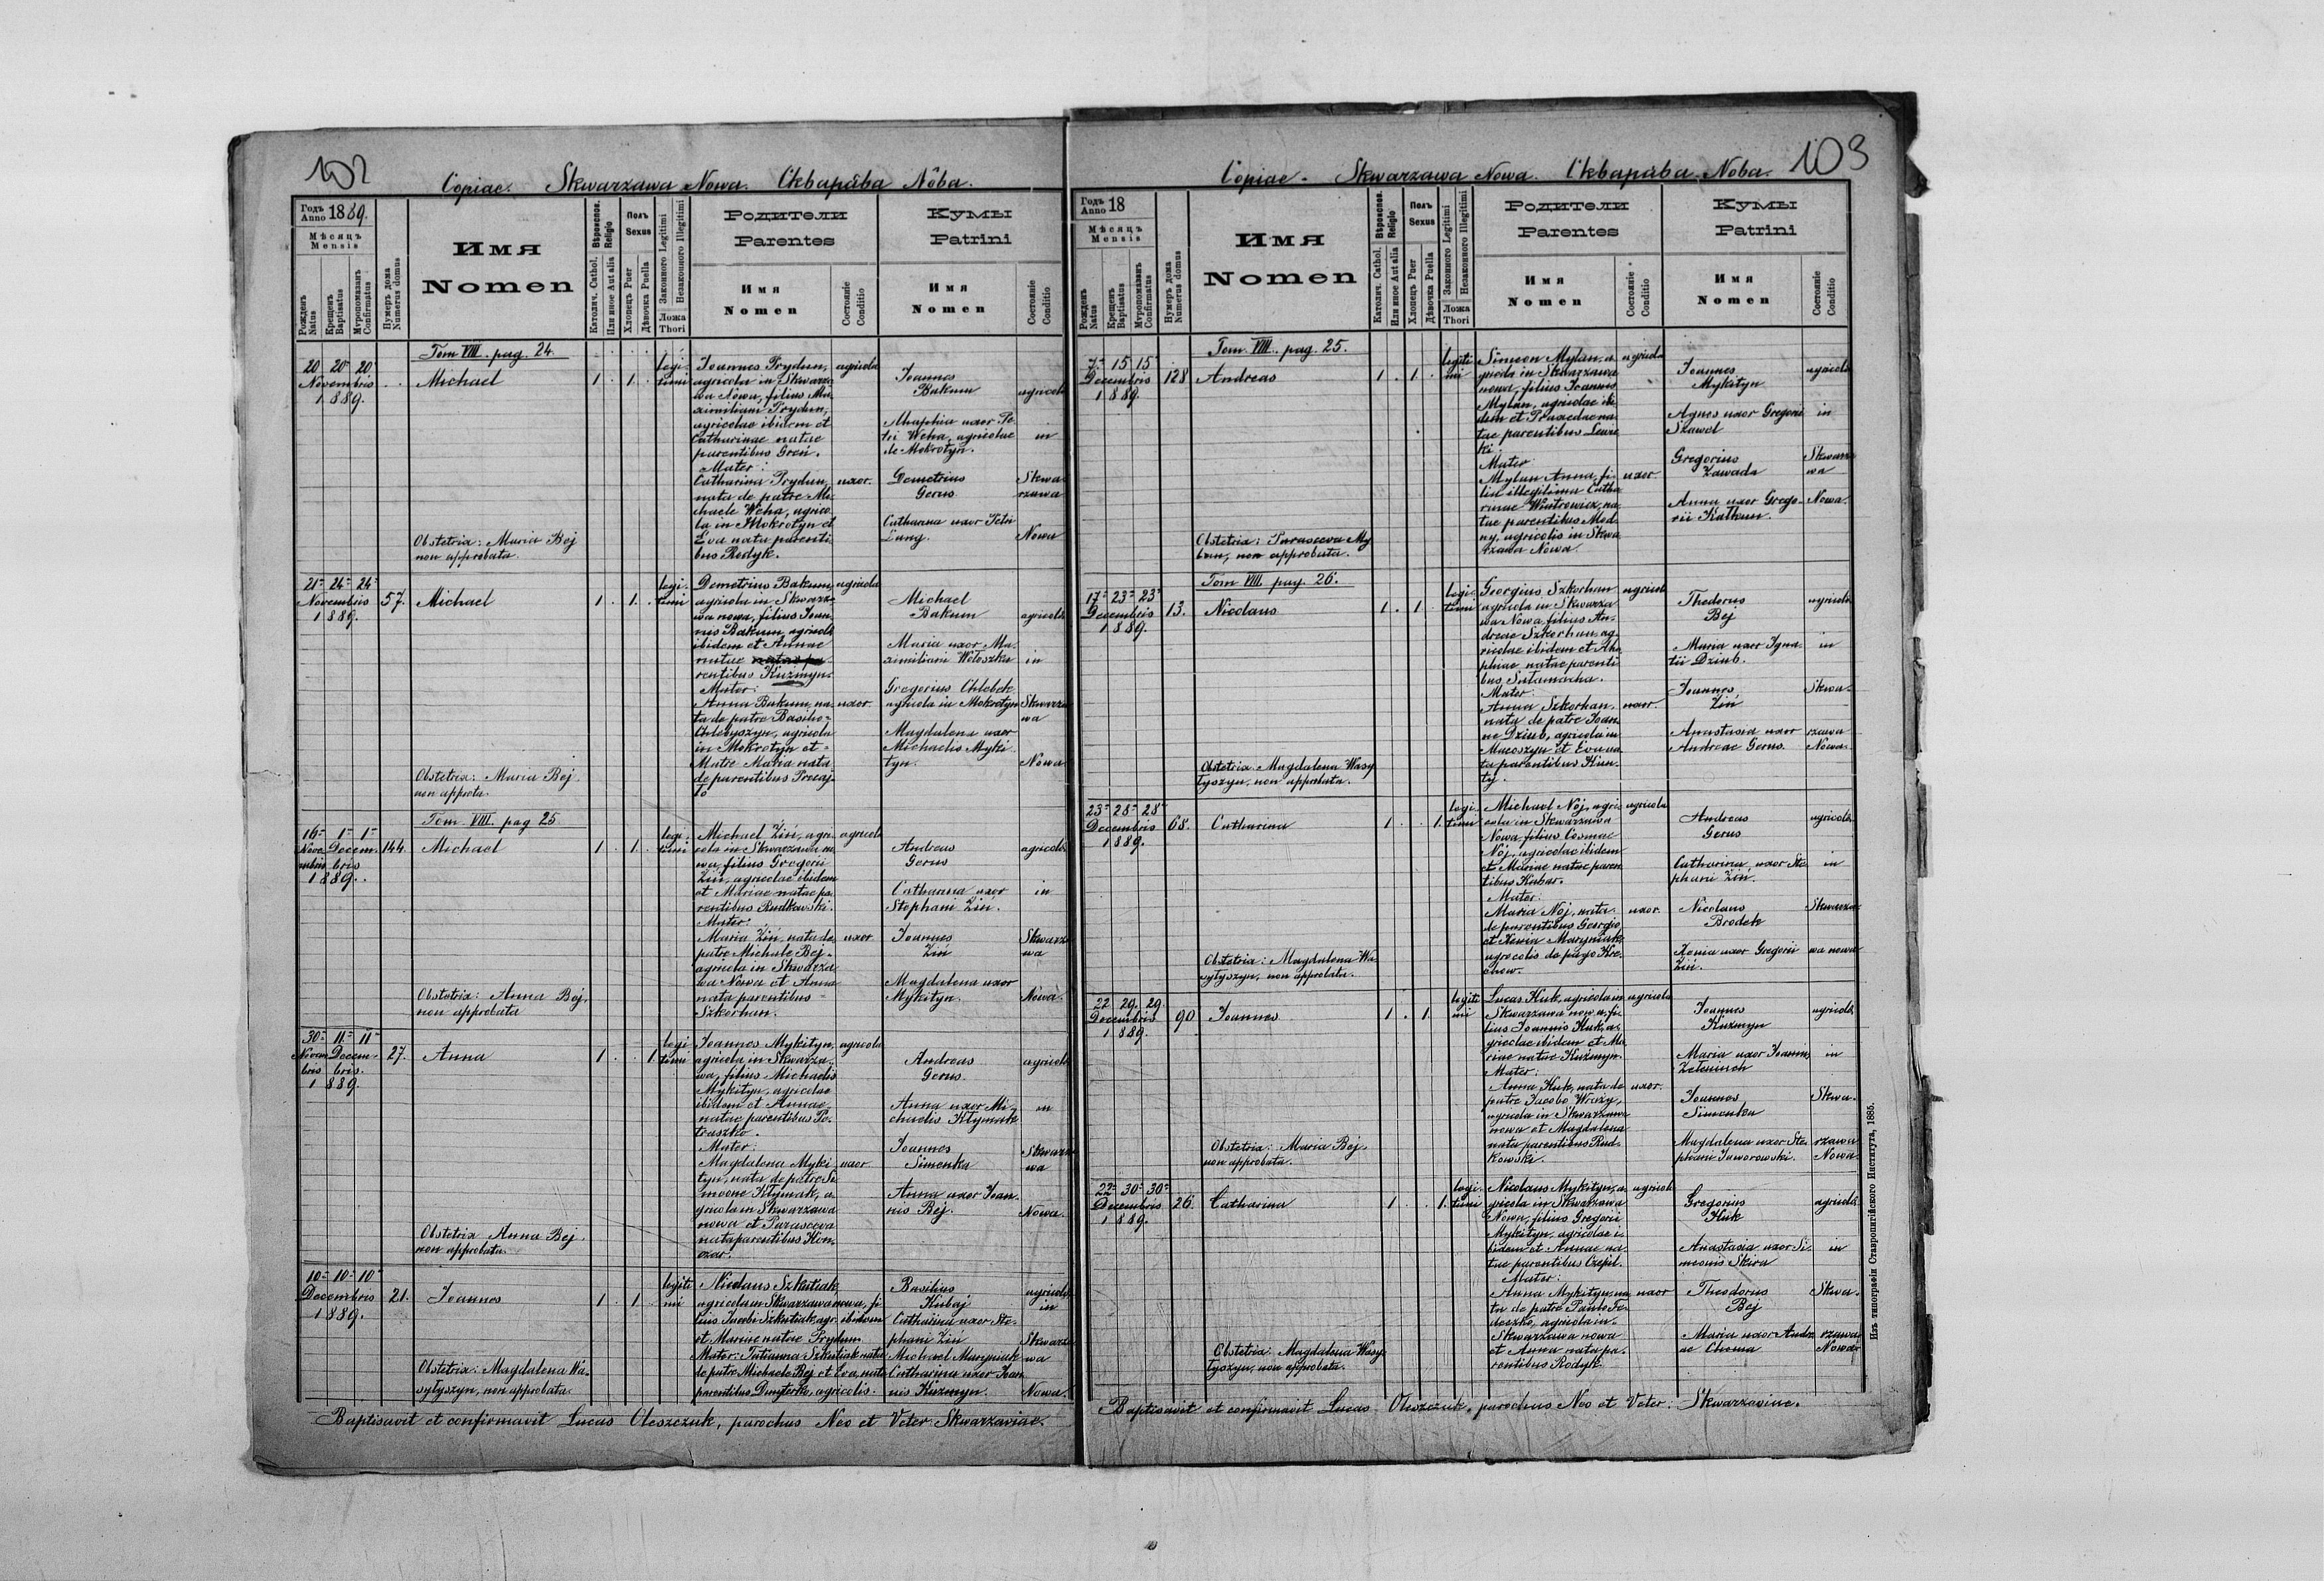 102
Copiae. Skwarzawa Nowa. Скварѣва Нова.
Годъ Anno 1889.
Мѣсяцъ Mensis
Рожденъ Natus
Крещенъ Baptisatus
Мѵропомазанъ Confirmatus
Нумеръ дома Numerus domus
Имя Nomen
Вѣроиспов. Religio
Католич. Cathol.
Или иное Aut alia
Полъ Sexus
Хлопецъ Puer
Дѣвочка Puella
Законного Legitimi
Незаконного Illegitimi
Ложа Thori
Родители Parentes
Имя Nomen
Состояніе Conditio
Кумы Patrini
Имя Nomen
Состояніе Conditio
Tom VIII. pag. 24.
20 20 20
Novembris
1889.
Michael
1. 1.
legi
timi
Joannes Prydun,
agricola in Skwarza
wa Nowa, filius Ma
ximiliani Prydun,
agricolae ibidem et
Catharinae natae
parentibus Greń.
Mater:
Catharina Prydun,
nata de patre Mi
chaele Weha, agrico
la in Mokrotyn et
Eva nata parenti
bus Rodyk.
agricola
uxor.
Joannes
Bakum
Ahaphia uxor Pe
tri Weha, agricolae
de Mokrotyn.
Demetrius
Gerus
Catharina uxor Petri
Lung.
agricola
in
Skwa
rzawa
Nowa
Obstetrix: Maria Bej
non approbata.
21 24 24
Novembris
1889.
57.
Michael
1. 1.
legi.
timi
Demetrius Bakum,
agricola in Skwarza
wa nowa, filius Joan
nis Bakum, agricola
ibidem et Annae
natae natae pa
rentibus Kuźmyn.
Mater:
Anna Bakum, na
ta de patre Basilio
Chlebyszyn, agricola
in Mokrotyn et
Matre Maria nata
de parentibus Precaj
ło
agricola
uxor.
Michael
Bakum
Maria uxor Ma
ximiliani Wołoszka
Gregorius Chlebek
agricola in Mokrotyn
Magdalena uxor
Michaelis Myki
tyn.
agricola
in
Skwarza
wa
Nowa
Obstetrix: Maria Bej
non approta.
Tom. VIII. pag 25.
16 1 1
Nove Decem.
mbris bris
1889.
144.
Michael
1. 1.
legi
timi
Michael Ziń, agri
cola in Skwarzawa no
wa, filius Gregorii
Ziń, agricolae ibidem
et Mariae natae pa
rentibus Rudkowski.
Mater:
Maria Ziń, nata de
patre Michaele Bej
agricola in Skwarza
wa Nowa et Anna
nata parentibus
Szkorhan.
agricola
uxor
Andreas
Gerus
Catharina uxor
Stephani Ziń.
Joannes
Ziń
Magdalena uxor
Mykityn.
agricola
in
Skwarza
wa
Nowa.
Obstetrix: Anna Bej,
non approbata
30 11 11
Novem Decem.
bris bris.
1889.
27.
Anna
1. 1.
legi
timi
Joannes Mykityn,
agricola in Skwarza
wa, filius Michaelis
Mykityn, agricolae
ibidem et Annae
natae parentibus Pe
traszko.
Mater:
Magdalena Myki
tyn, nata de patre Si
meone Kłymak, a
gricola in Skwarzawa
nowa et Parasceva
nata parentibus Kon
czar.
agricola
uxor
Andreas
Gerus.
Anna uxor Mi
chaelis Kłymak
Joannes
Simenka
Anna uxor Joan
nis Bej.
agricola
in
Skwarza
wa
Nowa.
Obstetrix Anna Bej,
non approbata.
10 10 10
Decembris
1889.
21.
Joannes
1. 1.
legiti
mi
Nicolaus Szkutiak,
agricola in Skwarzawa nowa, fi
lius Jacobi Szkutiak agr. ibidem
et Mariae natae Prydun.
Mater: Tatianna Szkutiak nata
de patre Michaele Bej et Eva, nata
parentibus Dmyterko, agricolis.
Basilius
Kubaj
Catharina uxor Ste
phani Ziń
Michael Maryniak
Catharina uxor Joan
nis Kuzmyn.
agricola
in
Skwarza
wa
Nowa.
Obstetrix: Magdalena Wa
syłyszyn, non approbata.
Baptisavit et confirmavit Lucas Oleszczuk, parochus Neo et Veter: Skwarzaviae.
103
Copiae. Skwarzawa Nowa. Скварѣва Нова.
Годъ Anno 18
Мѣсяцъ Mensis
Рожденъ Natus
Крещенъ Baptisatus
Мѵропомазанъ Confirmatus
Нумеръ дома Numerus domus
Имя Nomen
Вѣроиспов. Religio
Католич. Cathol.
Или иное Aut alia
Полъ Sexus
Хлопецъ Puer
Дѣвочка Puella
Законного Legitimi
Незаконного Illegitimi
Ложа Thori
Родители Parentes
Имя Nomen
Состояніе Conditio
Кумы Patrini
Имя Nomen
Состояніе Conditio
Tom. VIII. pag. 25.
7 15 15
Decembris
1889.
128
Andreas
1. 1.
legiti
mi
Simeon Mylan, a
gricola in Skwarzawa
nowa, filius Joannis
Mylan, agricolae ibi
dem et Praxedae na
tae parentibus Lewic
ki.
Mater:
Mylan Anna, fi
lia illegitima Catha
rinae Wintrowicz, na
tae parentibus Mod
ny, agricolis in Skwa
rzawa Nowa.
agricola
uxor.
Joannes
Mykityn
Agnes uxor Gregorii
Szawel
Gregorius
Zawada
Anna uxor Grego
rii Kałkun.
agricola
in
Skwarza
wa
Nowa.
Obstetrix: Parasceva My
lan, non approbata.
Tom VIII. pag. 26.
17 23 23
Decembris
1889.
13.
Nicolaus
1. 1.
legi
timi
Georgius Szkorhan
agricola in Skwarza
wa Nowa, filius An
dreae Szkorhan, ag
ricolae ibidem et Aha
phiae natae parenti
bus Sałamacha.
Mater:
Anna Szkorhan
nata de patre Joan
ne Dziub, agricola in
Macoszyn et Eva na
ta parentibus Hun
ty.
agricola
uxor.
Theodorus
Bej
Maria uxor Igna
tii Dziub.
Joannes
Ziń
Anastasia uxor
Andreae Gerus.
agricola
in
Skwa
rzawa
Nowa.
Obstetrix Magdalena Wasy
łyszyn, non approbata.
23 28 28
Decembris
1889.
68.
Catharina
1. 1.
legi
timi
Michael Nój, agri
cola in Skwarzawa
Nowa, filius Cosmae
Nój, agricolae ibidem
et Mariae natae paren
tibus Kubar.
Mater:
Maria Nój, nata
de parentibus Georgio
et Xenia Maryniak
agricolis de pago Kre
chow.
agricola
uxor.
Andreas
Gerus
Catharina uxor Ste
phani Ziń.
Nicolaus
Brodek
Xenia uxor Gregorii
Ziń.
agricola
in
Skwarza
wa nowa
Obstetrix: Magdalena Wa
syłyszyn, non approbata.
22 29. 29.
Decembris
1889.
90
Joannes
1. 1.
legiti
mi
Lucas Huk, agricola in
Skwarzawa nowa, fi
lius Joannis Huk, a
gricolae ibidem et Ma
riae natae Kuzmyn.
Mater:
Anna Huk, nata de
patre Jacobo Wrazy,
agricola in Skwarzawa
nowa et Magdalena
nata parentibus Rud
kowski.
agricola
uxor.
Joannes
Kuzmyn
Maria uxor Joannis
Zeleniuch
Joannes
Simenka
Magdalena uxor Ste
phani Jaworowski.
agricola
in
Skwa
rzawa
Nowa.
Obstetrix: Maria Bej,
non approbata.
22 30 30
Decembris
1889.
26.
Catharina
1. 1.
legi
timi
Nicolaus Mykityn, a
gricola in Skwarzawa
Nowa, filius Gregorii
Mykityn, agricolae i
bidem et Annae na
tae parentibus Czepil.
Mater:
Anna Mykityn, na
ta de patre Paulo Fe
deczko, agricola in
Skwarzawa nowa
et Anna nata pa
rentibus Rodyk.
agricola
uxor
Gregorius
Huk
Anastasia uxor Si
meonis Skira
Theodorus
Bej
Maria uxor Andre
ae Choma
agricola
in
Skwa
rzawa
Nowa
Obstetrix: Magdalena Wasy
łyszyn, non approbata.
Baptisavit et confirmavit Lucas Oleszczuk, parochus Neo et Veter: Skwarzaviae.
Изъ типографіи Ставропигійского Института, 1885.